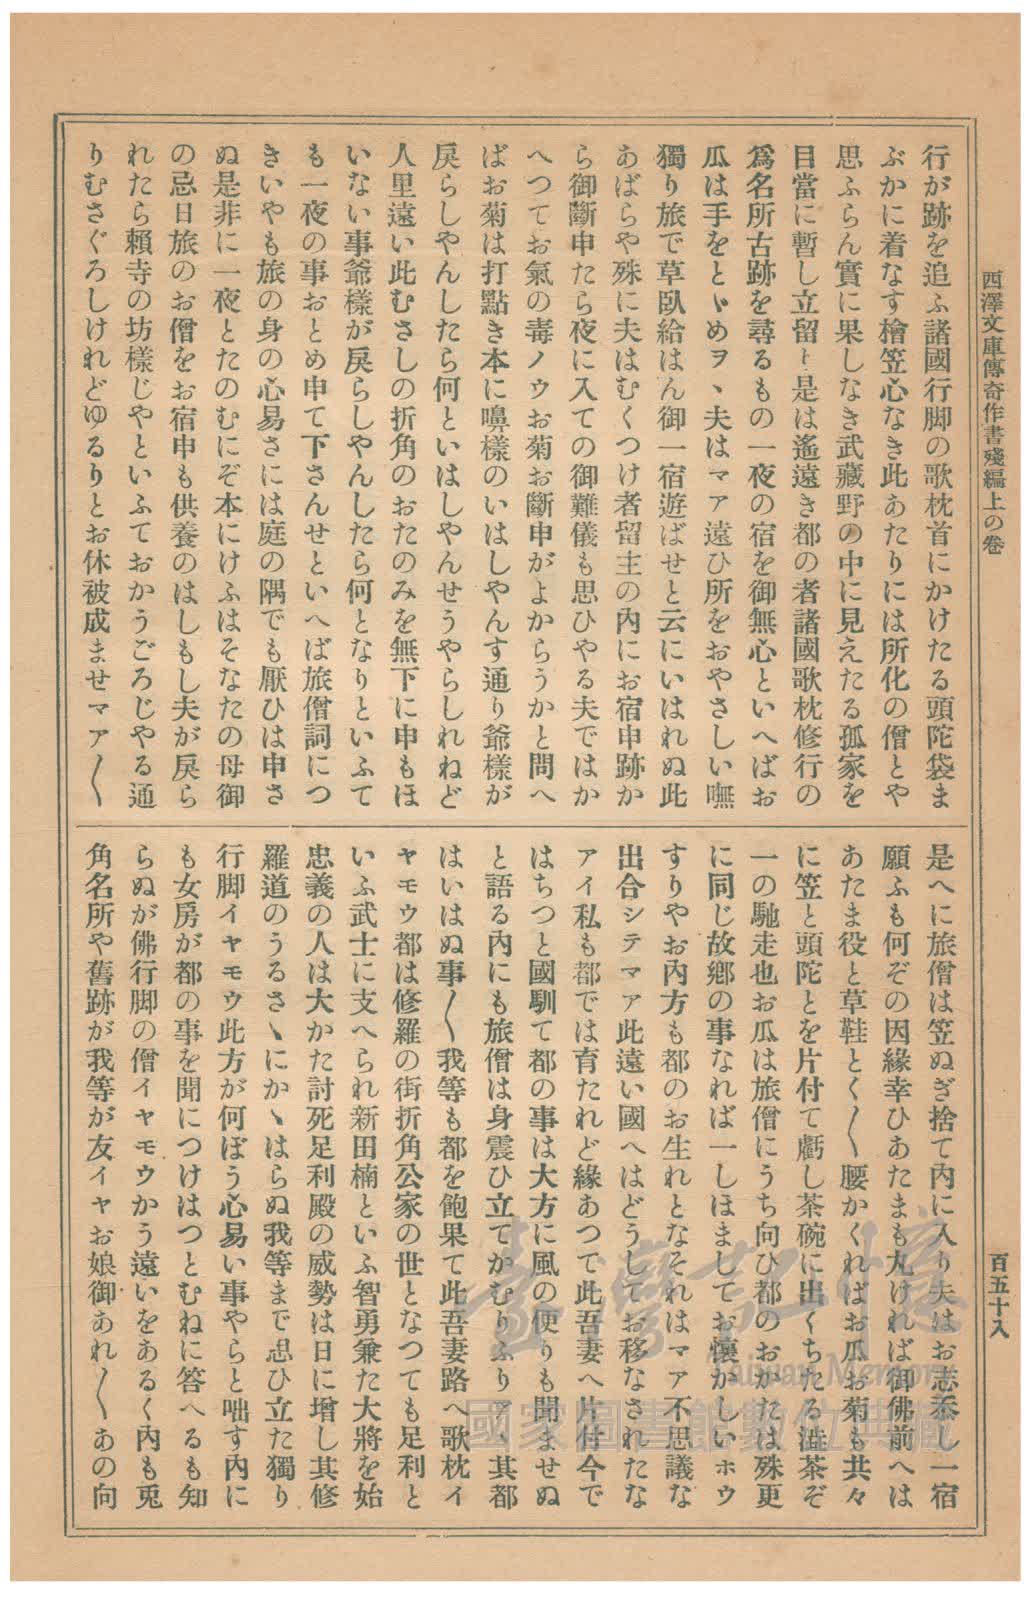 西澤文庫傳奇作書殘編上の卷
百五十八
行が跡を追ふ諸國行脚の歌枕首にかけたる頭陀袋ま
ぶかに着なす檜笠心なき此あたりには所化の僧とや
思ふらん實に果しなき武藏野の中に見えたる孤家を
目當に暫し立留ト是は遙遠き都の者諸國歌枕修行の
爲名所古跡を尋るもの一夜の宿を御無心といへばお
瓜は手をとゞめヲヽ夫はマア遠ひ所をおやさしい嘸
獨り旅で草臥給はん御一宿遊ばせと云にいはれぬ此
あばらや殊に夫はむくつけ者留主の內にお宿申跡か
ら御斷申たら夜に入ての御難儀も思ひやる夫ではか
へつてお氣の毒ノウお菊お斷申がよからうかと問へ
ばお菊は打點き本に嚊樣のいはしやんす通り爺樣が
戾らしやんしたら何といはしやんせうやらしれねど
人里遠い此むさしの折角のおたのみを無下に申もほ
いない事爺樣が戾らしやんしたら何となりといふて
も一夜の事おとめ申て下さんせといへば旅僧詞につ
きいやも旅の身の心易さには庭の隅でも厭ひは申さ
ぬ是非に一夜とたのむにぞ本にけふはそなたの母御
の忌日旅のお僧をお宿申も供養のはしもし夫が戾ら
れたら賴寺の坊樣じやといふておかうごろじやる通
りむさぐろしけれどゆるりとお休被成ませマア〱
是へに旅僧は笠ぬぎ捨て內に入り夫はお志忝し一宿
願ふも何ぞの因緣幸ひあたまも丸ければ御佛前へは
あたま役と草鞋とく〱腰かくればお瓜お菊も共々
に笠と頭陀とを片付て虧し茶碗に出くちたる澁茶ぞ
一の馳走也お瓜は旅僧にうち向ひ都のおかたは殊更
に同じ故鄕の事なれば一しほましてお懷かしいホウ
すりやお內方も都のお生れとなそれはマア不思議な
出合シテマア此遠い國へはどうしてお移なされたな
アイ私も都では育たれど緣あつて此吾妻へ片付今で
はちつと國馴て都の事は大方に風の便りも聞ませぬ
と語る內にも旅僧は身震ひ立てかむりふりアヽ其都
はいはぬ事〱我等も都を飽果て此吾妻路へ歌枕イ
ヤモウ都は修羅の街折角公家の世となつても足利と
いふ武士に支へられ新田楠といふ智勇兼た大將を始
忠義の人は大かた討死足利殿の威勢は日に增し其修
羅道のうるさヽにかヽはらぬ我等まで思ひ立た獨り
行脚イヤモウ此方が何ぼう心易い事やらと咄す內に
も女房が都の事を聞につけはつとむねに答へるも知
らぬが佛行脚の僧イヤモウかう遠いをあるく內も兎
角名所や舊跡が我等が友イヤお娘御あれ〱あの向
臺灣記憶
Taiwan Memory
國家圖書館數位典藏